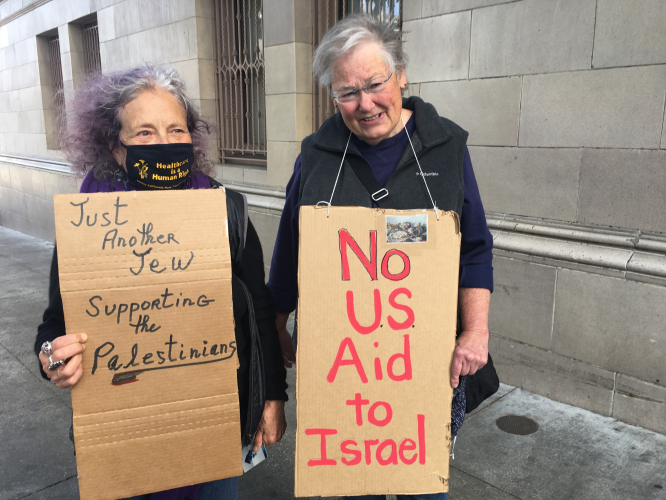 Just
Another
Jew
Supporting
the
Palestinians
Healthcare
is a
Human Right
No
U.S.
Aid
to
Israel
Columbia